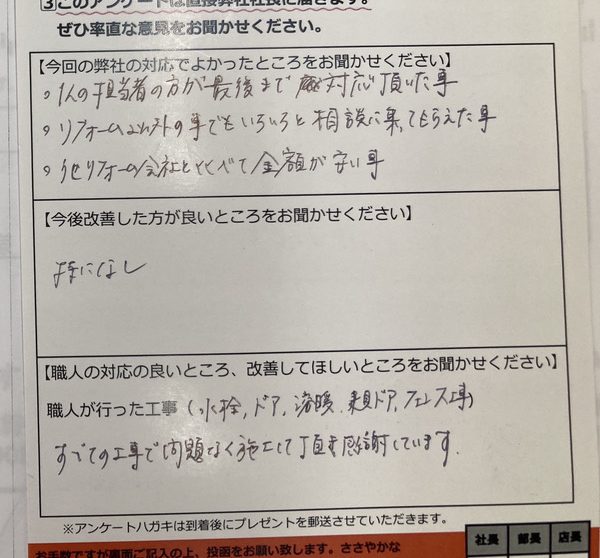 ③このアンケートは直接弊社社長に届きます。
ぜひ率直な意見をお聞かせください。
【今回の弊社の対応でよかったところをお聞かせください】
。1人の担当者の方が最後まで 対応頂いた事
。リフォーム以外の事でもいろいろと相談に乗ってもらえた事
。他リフォーム会社と比べて金額が安い事
【今後改善した方が良いところをお聞かせください】
特になし
【職人の対応の良いところ、改善してほしいところをお聞かせください】
職人が行った工事（水栓,ドア,浴暖,玄関ドア,フェンス工事）
すべての工事で問題なく施工して頂き感謝しています.
※アンケートハガキは到着後にプレゼントを郵送させていただきます。
お手数ですが裏面ご記入の上、投函をお願い致します。ささやかな
社長 部長 店長